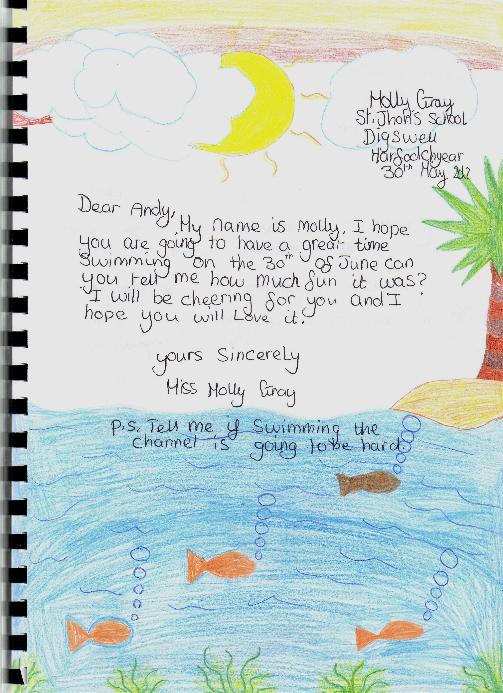 Molly Gray
St. Jhon's School
Digswell
30th May
Dear Andy,
My name is Molly. I hope
you are going to have a great time
Swimming on the 30th of June can
you tell me how much fun it was?
I will be cheering for you and I
hope you will Love it!
yours Sincerely
Miss Molly Gray
P.S. Tell me if Swimming the
channel is going to be hard.